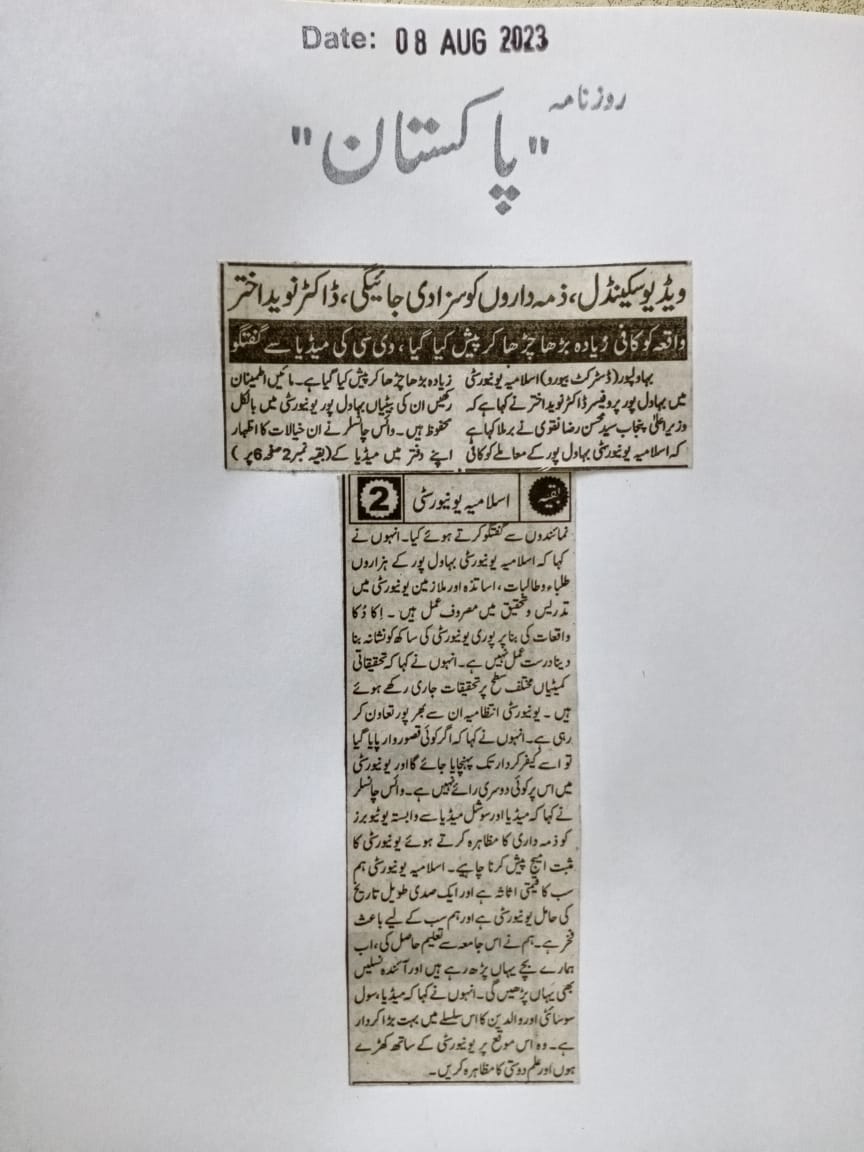 Date: 08 AUG 2023
روزنامہ
"پاکستان"
ویڈیو سکینڈل، ذمہ داروں کو سزا دی جائیگی، ڈاکٹر نوید اختر
واقعہ کو کافی زیادہ بڑھا چڑھا کر پیش کیا گیا، وی سی کی میڈیا سے گفتگو
بہاولپور (ڈسٹرکٹ بیورو) اسلامیہ یونیورسٹی
میں بہاول پور پروفیسر ڈاکٹر نوید اختر نے کہا ہے کہ
وزیر اعلیٰ پنجاب سید محسن رضا نقوی نے برملا کہا ہے
کہ اسلامیہ یونیورسٹی بہاول پور کے معاملے کو کافی
زیادہ بڑھا چڑھا کر پیش کیا گیا ہے۔ مائیں اطمینان
رکھیں ان کی بیٹیاں بہاول پور یونیورسٹی میں بالکل
محفوظ ہیں۔ وائس چانسلر نے ان خیالات کا اظہار
اپنے دفتر میں میڈیا کے (بقیہ نمبر 2 صفحہ 6 پر)
بقیہ اسلامیہ یونیورسٹی 2
نمائندوں سے گفتگو کرتے ہوئے کیا۔ انہوں نے
کہا کہ اسلامیہ یونیورسٹی بہاول پور کے ہزاروں
طلباء و طالبات، اساتذہ اور ملازمین یونیورسٹی میں
تدریس و تحقیق میں مصروف عمل ہیں۔ اِکا دُکا
واقعات کی بنا پر پوری یونیورسٹی کی ساکھ کو نشانہ بنا
دینا درست عمل نہیں ہے۔ انہوں نے کہا کہ تحقیقاتی
کمیٹیاں مختلف سطح پر تحقیقات جاری رکھے ہوئے
ہیں۔ یونیورسٹی انتظامیہ ان سے بھرپور تعاون کر
رہی ہے۔ انہوں نے کہا کہ اگر کوئی قصوروار پایا گیا
تو اسے کیفر کردار تک پہنچایا جائے گا اور یونیورسٹی
میں اس پر کوئی دوسری رائے نہیں ہے۔ وائس چانسلر
نے کہا کہ میڈیا اور سوشل میڈیا سے وابستہ یوٹیوبرز
کو ذمہ داری کا مظاہرہ کرتے ہوئے یونیورسٹی کا
مثبت امیج پیش کرنا چاہیے۔ اسلامیہ یونیورسٹی ہم
سب کا قیمتی اثاثہ ہے اور ایک صدی طویل تاریخ
کی حامل یونیورسٹی ہے اور ہم سب کے لیے باعث
فخر ہے۔ ہم نے اس جامعہ سے تعلیم حاصل کی، اب
ہمارے بچے یہاں پڑھ رہے ہیں اور آئندہ نسلیں
بھی یہاں پڑھیں گی۔ انہوں نے کہا کہ میڈیا، سول
سوسائٹی اور والدین کا اس سلسلے میں بہت بڑا کردار
ہے۔ وہ اس موقع پر یونیورسٹی کے ساتھ کھڑے
ہوں اور علم دوستی کا مظاہرہ کریں۔